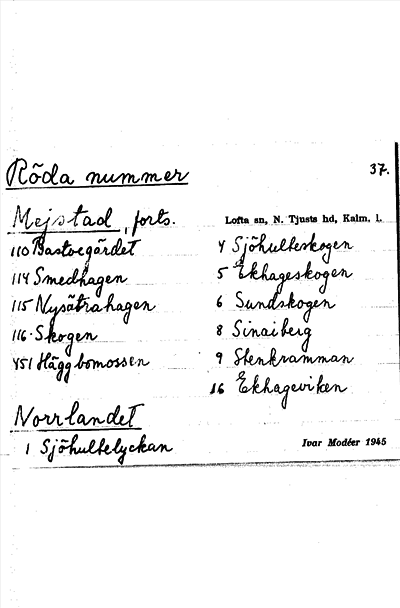 Röda nummer
37.
Mejstad, forts.
Lofta sn, N. Tjusts hd, Kalm. l.
110 Bastvegärdet
114 Smedhagen
115 Nysätrahagen
116 Skogen
451 Häggbomossen
Norrlandet
1 Sjöhultelyckan
4 Sjöhulteskogen
5 Ekhageskogen
6 Sundskogen
8 Sinaiberg
9 Stenkramman
16 Ekhageviken
Ivar Modéer 1945